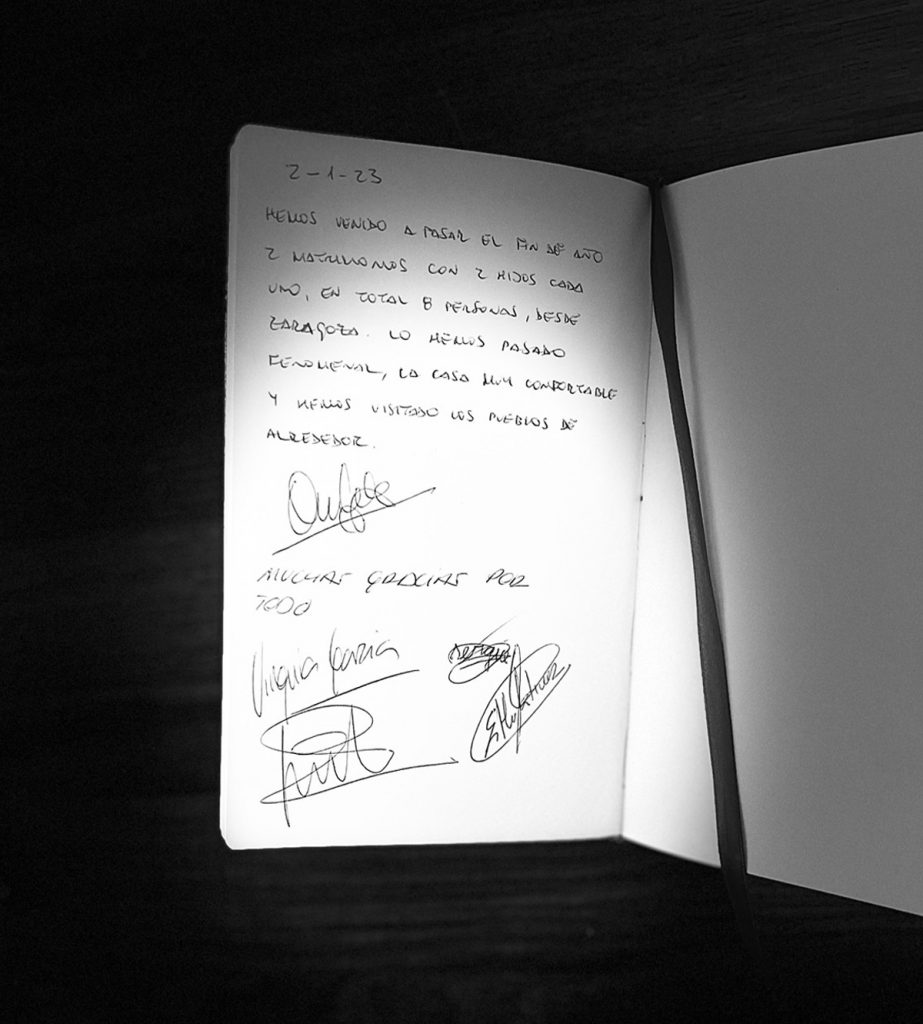 2-1-23
HEMOS VENIDO A PASAR EL FIN DE AÑO
2 MATRIMONIOS CON 2 HIJOS CADA
UNO, EN TOTAL 8 PERSONAS, DESDE
ZARAGOZA. LO HEMOS PASADO
FENOMENAL, LA CASA MUY COMFORTABLE
Y HEMOS VISITADO LOS PUEBLOS DE
ALREDEDOR.
MUCHAS GRACIAS POR
TODO